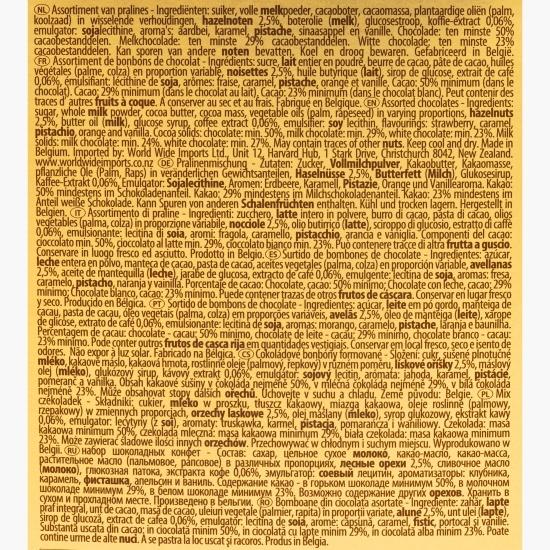 NL Assortiment van pralines - Ingrediënten: suiker, volle melkpoeder, cacaoboter, cacaomassa, plantaardige oliën (palm,
koolzaad) in wisselende verhoudingen, hazelnoten 2,5%, boterolie (melk), glucosestroop, koffie-extract 0,06%,
emulgator: sojalecithine, aroma's: aardbei, karamel, pistache, sinaasappel en vanille. Chocolade: ten minste 50%
cacaobestanddelen. Melkchocolade: ten minste 29% cacaobestanddelen. Witte chocolade: ten minste 23%
cacaobestanddelen. Kan sporen van andere noten bevatten. Koel en droog bewaren. Gefabriceerd in België.
FR Assortiment de bonbons de chocolat - Ingrédients: sucre, lait entier en poudre, beurre de cacao, pâte de cacao, huiles
végétales (palme, colza) en proportion variable, noisettes 2,5%, huile butyrique (lait), sirop de glucose, extrait de café
0,06%, émulsifiant: lécithine de soja, arômes: fraise, caramel, pistache, orange et vanille. Cacao: 50% minimum (dans le
chocolat). Cacao: 29% minimum (dans le chocolat au lait). Cacao: 23% minimum (dans le chocolat blanc). Peut contenir des
traces d'autres fruits à coque. A conserver au sec et au frais. Fabriqué en Belgique. EN Assorted chocolates - Ingredients:
sugar, whole milk powder, cocoa butter, cocoa mass, vegetable oils (palm, rapeseed) in varying proportions, hazelnuts
2,5%, butter oil (milk), glucose syrup, coffee extract 0,06%, emulsifier: soy lecithin, flavourings: strawberry, caramel,
pistachio, orange and vanilla. Cocoa solids: chocolate: min. 50%, milk chocolate: min. 29%, white chocolate: min. 23%. Milk
solids: milk chocolate: min. 24%, white chocolate: min. 27%. May contain traces of other nuts. Keep cool and dry. Made in
Belgium. Imported by: World Wide Imports Ltd., Unit 12, Harvard Hub, 1 Stark Drive, Christchurch 8042, New Zealand.
www.worldwideimports.co.nz DE Pralinenmischung - Zutaten: Zucker, Vollmilchpulver, Kakaobutter, Kakaomasse,
pflanzliche Öle (Palm, Raps) in veränderlichen Gewichtsanteilen, Haselnüsse 2,5%, Butterfett (Milch), Glukosesirup,
Kaffee-Extrakt 0,06%, Emulgator: Sojalecithine, Aromen: Erdbeere, Karamell, Pistazie, Orange und Vanillearoma. Kakao:
50% mindestens im Schokoladenanteil. Kakao: 29% mindestens im Milchschokoladenanteil. Kakao: 23% mindestens im
Anteil weiße Schokolade. Kann Spuren von anderen Schalenfrüchten enthalten. Kühl und trocken lagern. Hergestellt in
Belgien. IT Assortimento di praline - Ingredienti: zucchero, latte intero in polvere, burro di cacao, pasta di cacao, oli
vegetali (palma, colza) in proporzione variabile, nocciole 2,5%, olio butirrico (latte), sciroppo di glucosio, estratto di caffè
0,06%, emulsionante: lecitina di soia, aromi: fragola, caramello, pistacchio, arancia e vaniglia. Componenti del cacao:
cioccolato min. 50%, cioccolato al latte min. 29%, cioccolato bianco min. 23%. Può contenere tracce di altra frutta a guscio.
Conservare in luogo fresco ed asciutto. Prodotto in Belgio. ES Surtido de bombones de chocolate - Ingredientes: azúcar,
leche entera en pólvo, manteca de cacao, pasta de cacao, aceites vegetales (palma, colza) en proporción variable, avellanas
2,5%, aceite de mantequilla (leche), jarabe de glucosa, extracto de café 0,06%, emulgente: lecitina de soja, aromas: fresa,
caramelo, pistacho, naranja y vainilla. Porcentaje de cacao: Chocolate, cacao: 50% mínimo; Chocolate con leche, cacao: 29%
mínimo; Chocolate blanco, cacao: 23% mínimo. Puede contener trazas de otros frutos de cáscara. Conservar en lugar fresco
y seco. Producido en Bélgica. PT Sortido de bombons de chocolate - Ingredientes: açúcar, leite em pó gordo, manteiga de
cacau, pasta de cacau, óleos vegetais (palma, colza) em proporções variáveis, avelãs 2,5%, óleo de manteiga (leite), xarope
de glucose, extrato de café 0,06%, emulsionante: lecitina de soja, aromas: morango, caramelo, pistache, laranja e baunilha.
Percentagem de cacau: chocolate - cacau: 50% mínimo, chocolate de leite - cacau: 29% mínimo, chocolate branco - cacau:
23% mínimo. Pode conter outros frutos de casca rija em quantidades vestigiais. Conservar em local fresco, seco e isento de
odores. Não expor à luz solar. Fabricado na Bélgica. CS Čokoládové bonbony formované - Složení: cukr, sušené plnotučné
mléko, kakaové máslo, kakaová hmota, rostlinné oleje (palmový, řepkový) v různém poměru, lískové oříšky 2,5%, máslový
olej (mléko), glukózový sirup, kávový extrakt 0,06%, emulgátor: sojový lecitin, aromata: jahoda, karamel, pistácie,
pomeranč a vanilka. Obsah kakaové sušiny v čokoládě nejméně 50%, v mléčné čokoládě nejméně 29%, v bílá čokoládě
nejméně 23%. Může obsahovat stopy dalších ořechů. Uchovejte v suchu a chladu. Země původu: Belgie. PL Mix
czekoladek - Składniki: cukier, mleko w proszku, tłuszcz kakaowy, miazga kakaowa, oleje roślinne (palmowy,
rzepakowy) w zmiennych proporcjach, orzechy laskowe 2,5%, olej maślany (mleko), syrop glukozowy, ekstrakt kawy
0,06%, emulgator: lecytyny (z soi), aromaty: truskawka, karmel, pistacja, pomarańcza i waniliowy. Czekolada: masa
kakaowa minimum 50%, czekolada mleczna: masa kakaowa minimum 29%, biała czekolada: masa kakaowa minimum
23%. Może zawierać śladowe ilości innych orzechów. Przechowywać w chłodnym i suchym miejscu. Wyprodukowano w
Belgii. RU набор шоколадных конфет - Состав: сахар, цельное сухое молоко, какао-масло, какао-масса,
растительное масло (пальмовое, рапсовое) в различных пропорциях, лесные орехи 2,5%, сливочное масло
(молоко), глюкозная патока, экстракта кофе 0,06%, эмульгатор: соевый лецитин, ароматизаторы: клубника,
карамель, фисташка, апельсин и ваниль. Содержание какао - в горьком шоколаде минимум 50%, в молочном
шоколаде минимум 29%, в белом шоколаде минимум 23%. Возможно содержание других орехов. Хранить в
сухом и прохладном месте. Произведено в Бельгии. RO Bomboane din ciocolată asortate - Ingrediente: zahăr, lapte
praf integral, unt de cacao, masă de cacao, uleiuri vegetale (palmier, rapita) in proporţii variate, alune 2,5%, unt ulei (lapte),
sirop de glucoză, extract de cafea 0,06%, emulsifiant: lecitină de soia, arome: căpşună, caramel, fistic, portocal şi vanilie.
Substantă uscata din cacao: în ciocolată minim 50%, in ciocolată cu lapte minim 29%, in ciocolată alba minim 23%. Poate
contine urme de alte nuci. A se pastra la loc uscat şi racoros. Produs in Belgia.